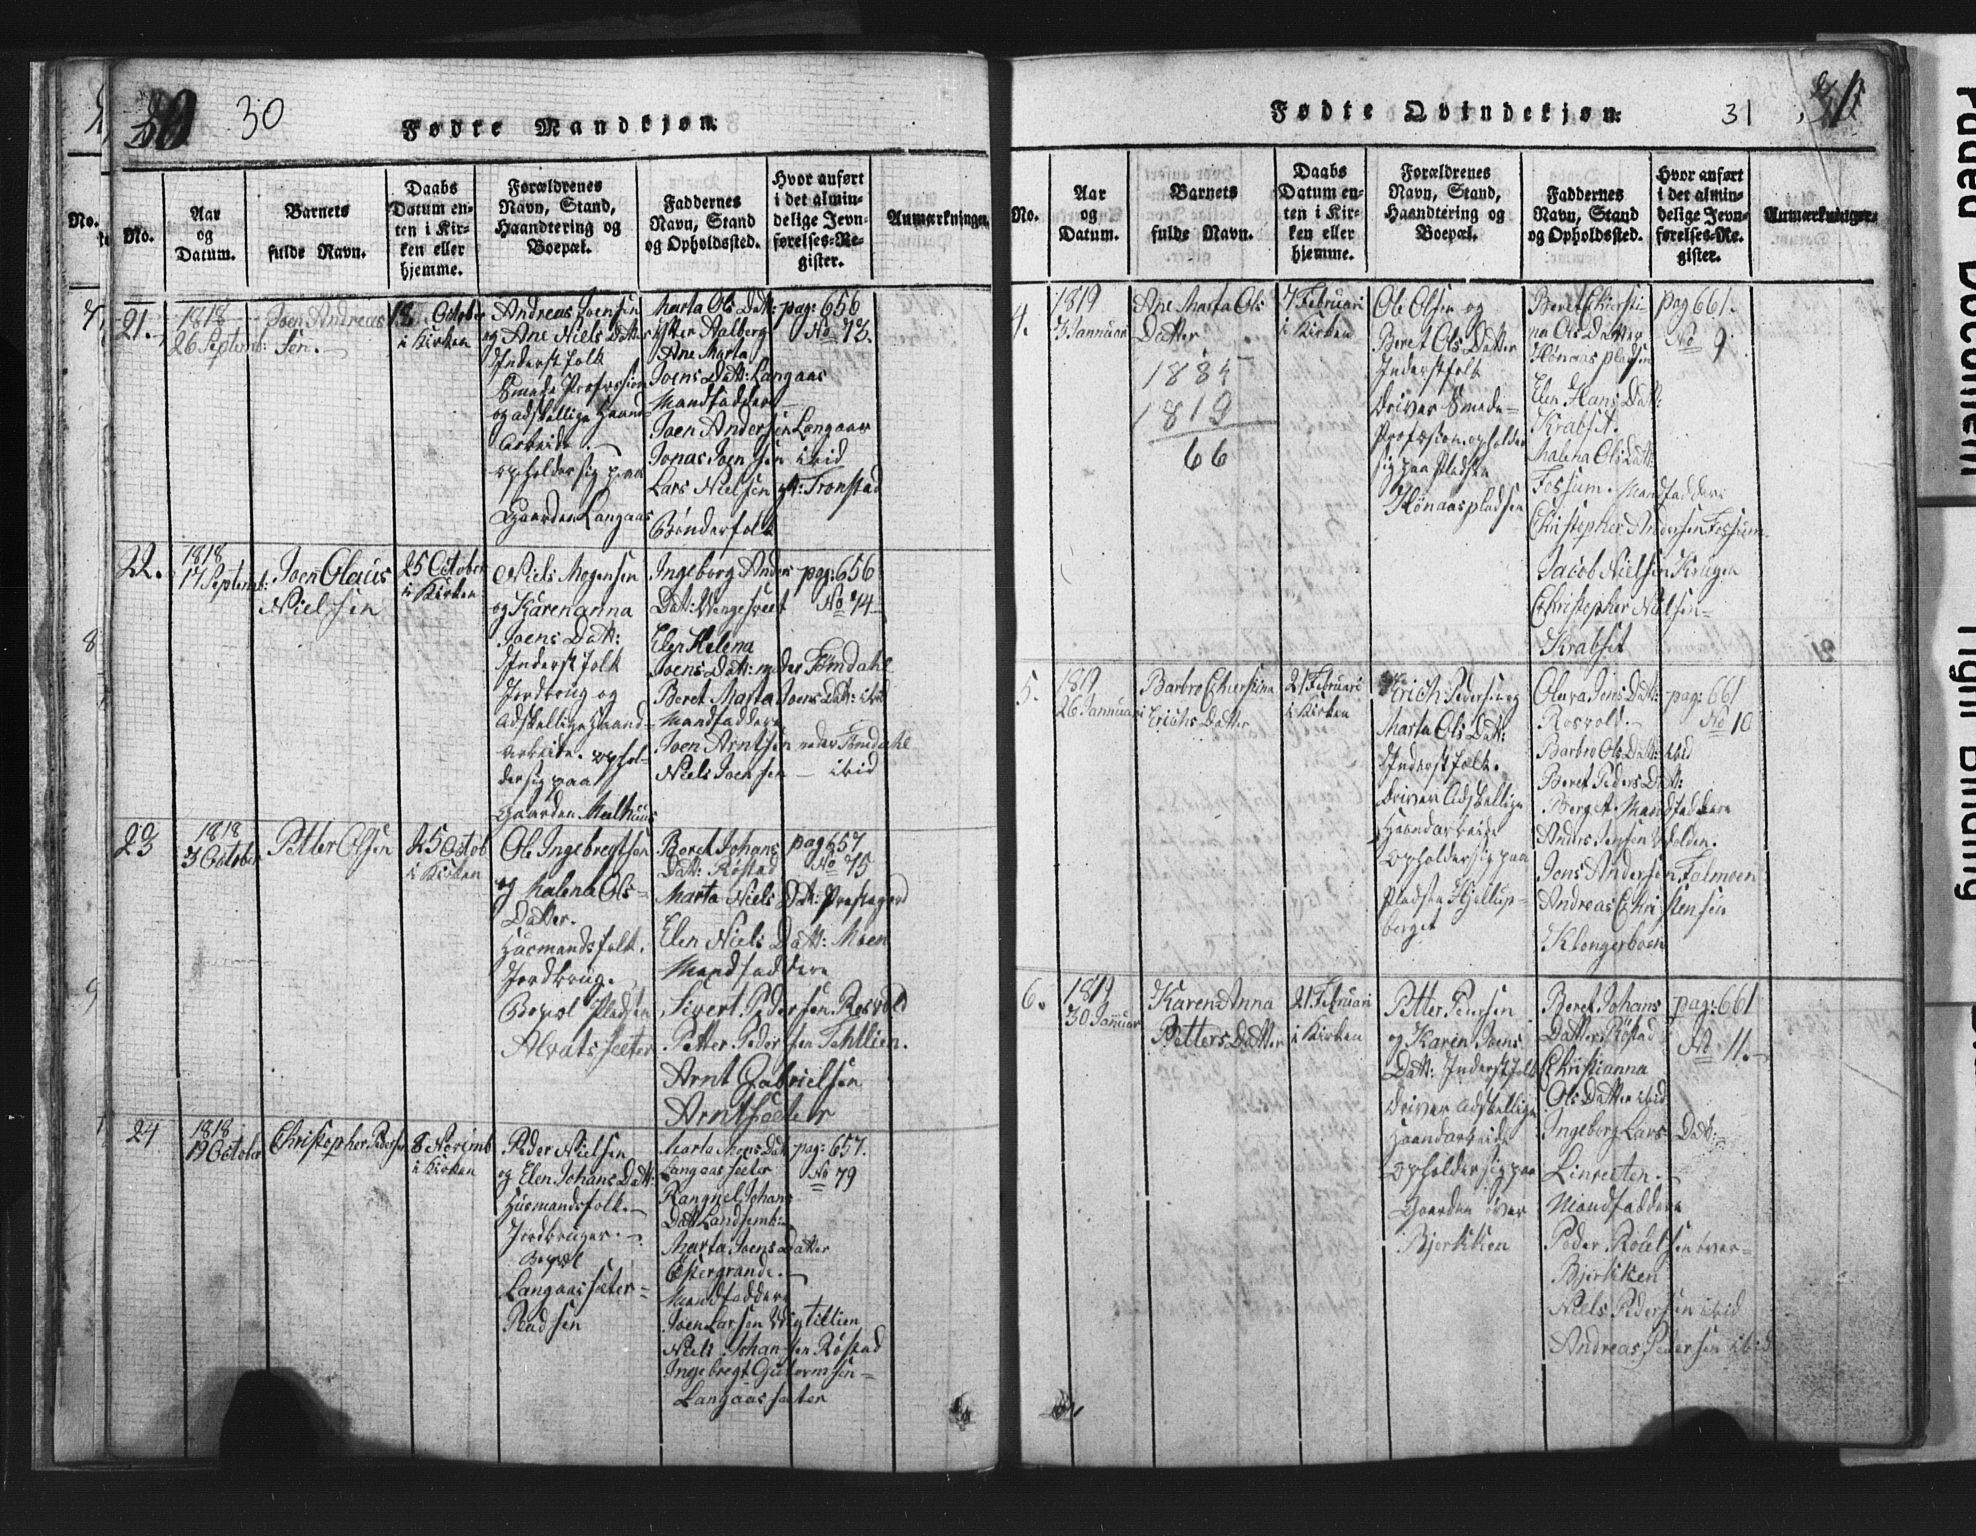 30
Fødte Mandkjøn.
No.
Aar og Datum.
Barnets fulde Navn.
Daabs Datum enten i Kirken eller hjemme.
Forældrenes Navn, Stand, Haandtering og Boepæl.
Faddernes Navn, Stand og Opholdssted.
Hvor anført i det almindelige Jevnførelses-Register.
Anmærkninger.
21.
1818
26 Septemb:
Joen Andreas
sen.
18 October
i Kirken
Andreas Joensen
og Ane Niels Datter
Inderstfolk
Smede Profession
og adskellige Haand
Arbeide.
opholder sig paa
Gaarden Langaas
Marta Ols Dat:
Ytter Aalberg
Ane Marta
Joens Datt: Langaas
Mandfaddere
Joen Andersen Langaas
Jonas Joensen ibid
Lars Nielsen Tronstad
Bønderfolk
pag: 656
No 73.
22.
1818
17 Septemb:
Joen Olaus
Nielsen
25 October
i Kirken
Niels Mogensen
og Karenanna
Joens Datt:
Inderstfolk
Jordbrug og
Adskellige Haand-
arbeide. ophol-
der sig paa
Gaarden Melhuus
Ingeborg Anders
Dat:
Elen Helena
Joens Dat: neder Tømdahl
Beret Marta Joens Dat: ibid
Mandfaddere
Joen Arntsen neder Tømdahl
Niels Joensen — ibid
pag: 656
No 74
23
1818
3 October
Petter Olsen
25 Octob
i Kirken
Ole Ingebregtsen
og Malena Ols-
Datter.
Huusmandsfolk.
Jordbrug.
Boepæl Pladsen
Alvatsseter
Beret Johans
Datt: Røstad
Marta Niels Dat: Prestegard
Elen Niels Datt: Moen
Mandfaddere
Sivert Pedersen Rosvold
Petter Pedersen Tehllien.
Arnt Gabrielsen
Arntseter
pag 657
No 75
24
1818
19 October
Christopher Pedersen
8 Novemb
i Kirken
Peder Nielsen
og Elen Johans Datt:
Huusmandsfolk.
Jordbruger.
Boepæl
Langaasseter-
Pladsen
Marta Mons Dat
Langaasseter
Rangnel Johans
Datt Landsemb:
Marta Joens Datter
Østergrande.
Mandfaddere
Joen Larsen Vigtillien
Niels Johansen Røstad
Ingebregt Guttormsen
Langaasseter
pag: 657.
No 79
Fødte Qvindekjøn.
31
No.
Aar og Datum.
Barnets fulde Navn.
Daabs Datum enten i Kirken eller hjemme.
Forældrenes Navn, Stand, Haandtering og Boepæl.
Faddernes Navn, Stand og Opholdssted.
Hvor anført i det almindelige Jevnførelses-Register.
Anmærkninger.
4.
1819
Januar
Ane Marta Ols
Datter
1885
1819
66
7 Februari
i Kirken
Ole Olsen og
Beret Ols Datter
Inderstfolk
Driver Smede-
Profession opholder
sig paa Pladsen
Hønaaspladsen
Beret Chersti-
na Ols Datter
Hønaaspladsen
Elen Hans Dat:
Krabset.
Malena Ols Datt:
Fossum. Mandfaddere
Christopher Andersen Fossum.
Jacob Nielsen Krugen
Christopher Nielsen-
Krabset
pag 661.
No 9
5.
1819
26 Januari
Barbro Cherstina
Erichs Datter
21 Februari
i Kirken
Erich Pedersen og
Marta Ols Dat:
Inderstfolk.
Driver Adskellige
Haandarbeide
opholder sig paa
Pladsen Hjellup-
berget
Oluva Jens Dat:
Rosvold.
Barbro Ols Dat: ibid
Beret Peders Datt:
Berget Mandfaddere
Anders Volden.
Jens Andersen Folmoen
Andreas Christensen
Klongerboen
pag: 661
No 10
6.
1819
30 Januar
Karen Anna
Petters Datter
21 Februari
i Kirken
Petter Pedersen
og Karen Joens
Datt: Inderstfolk
Driver Adskellige
Haandarbeide
opholder sig paa
Gaarden over
Bjerkken
Beret Johans
Datter Røstad
Christianna
Ols Datter ibid
Ingeborg Lars Dat:
Linreeten.
Mandfaddere
Peder Roelsen over-
Bjerkken
Niels Pedersen ibid
Andreas Pedersen ibid
pag: 661
No 11.